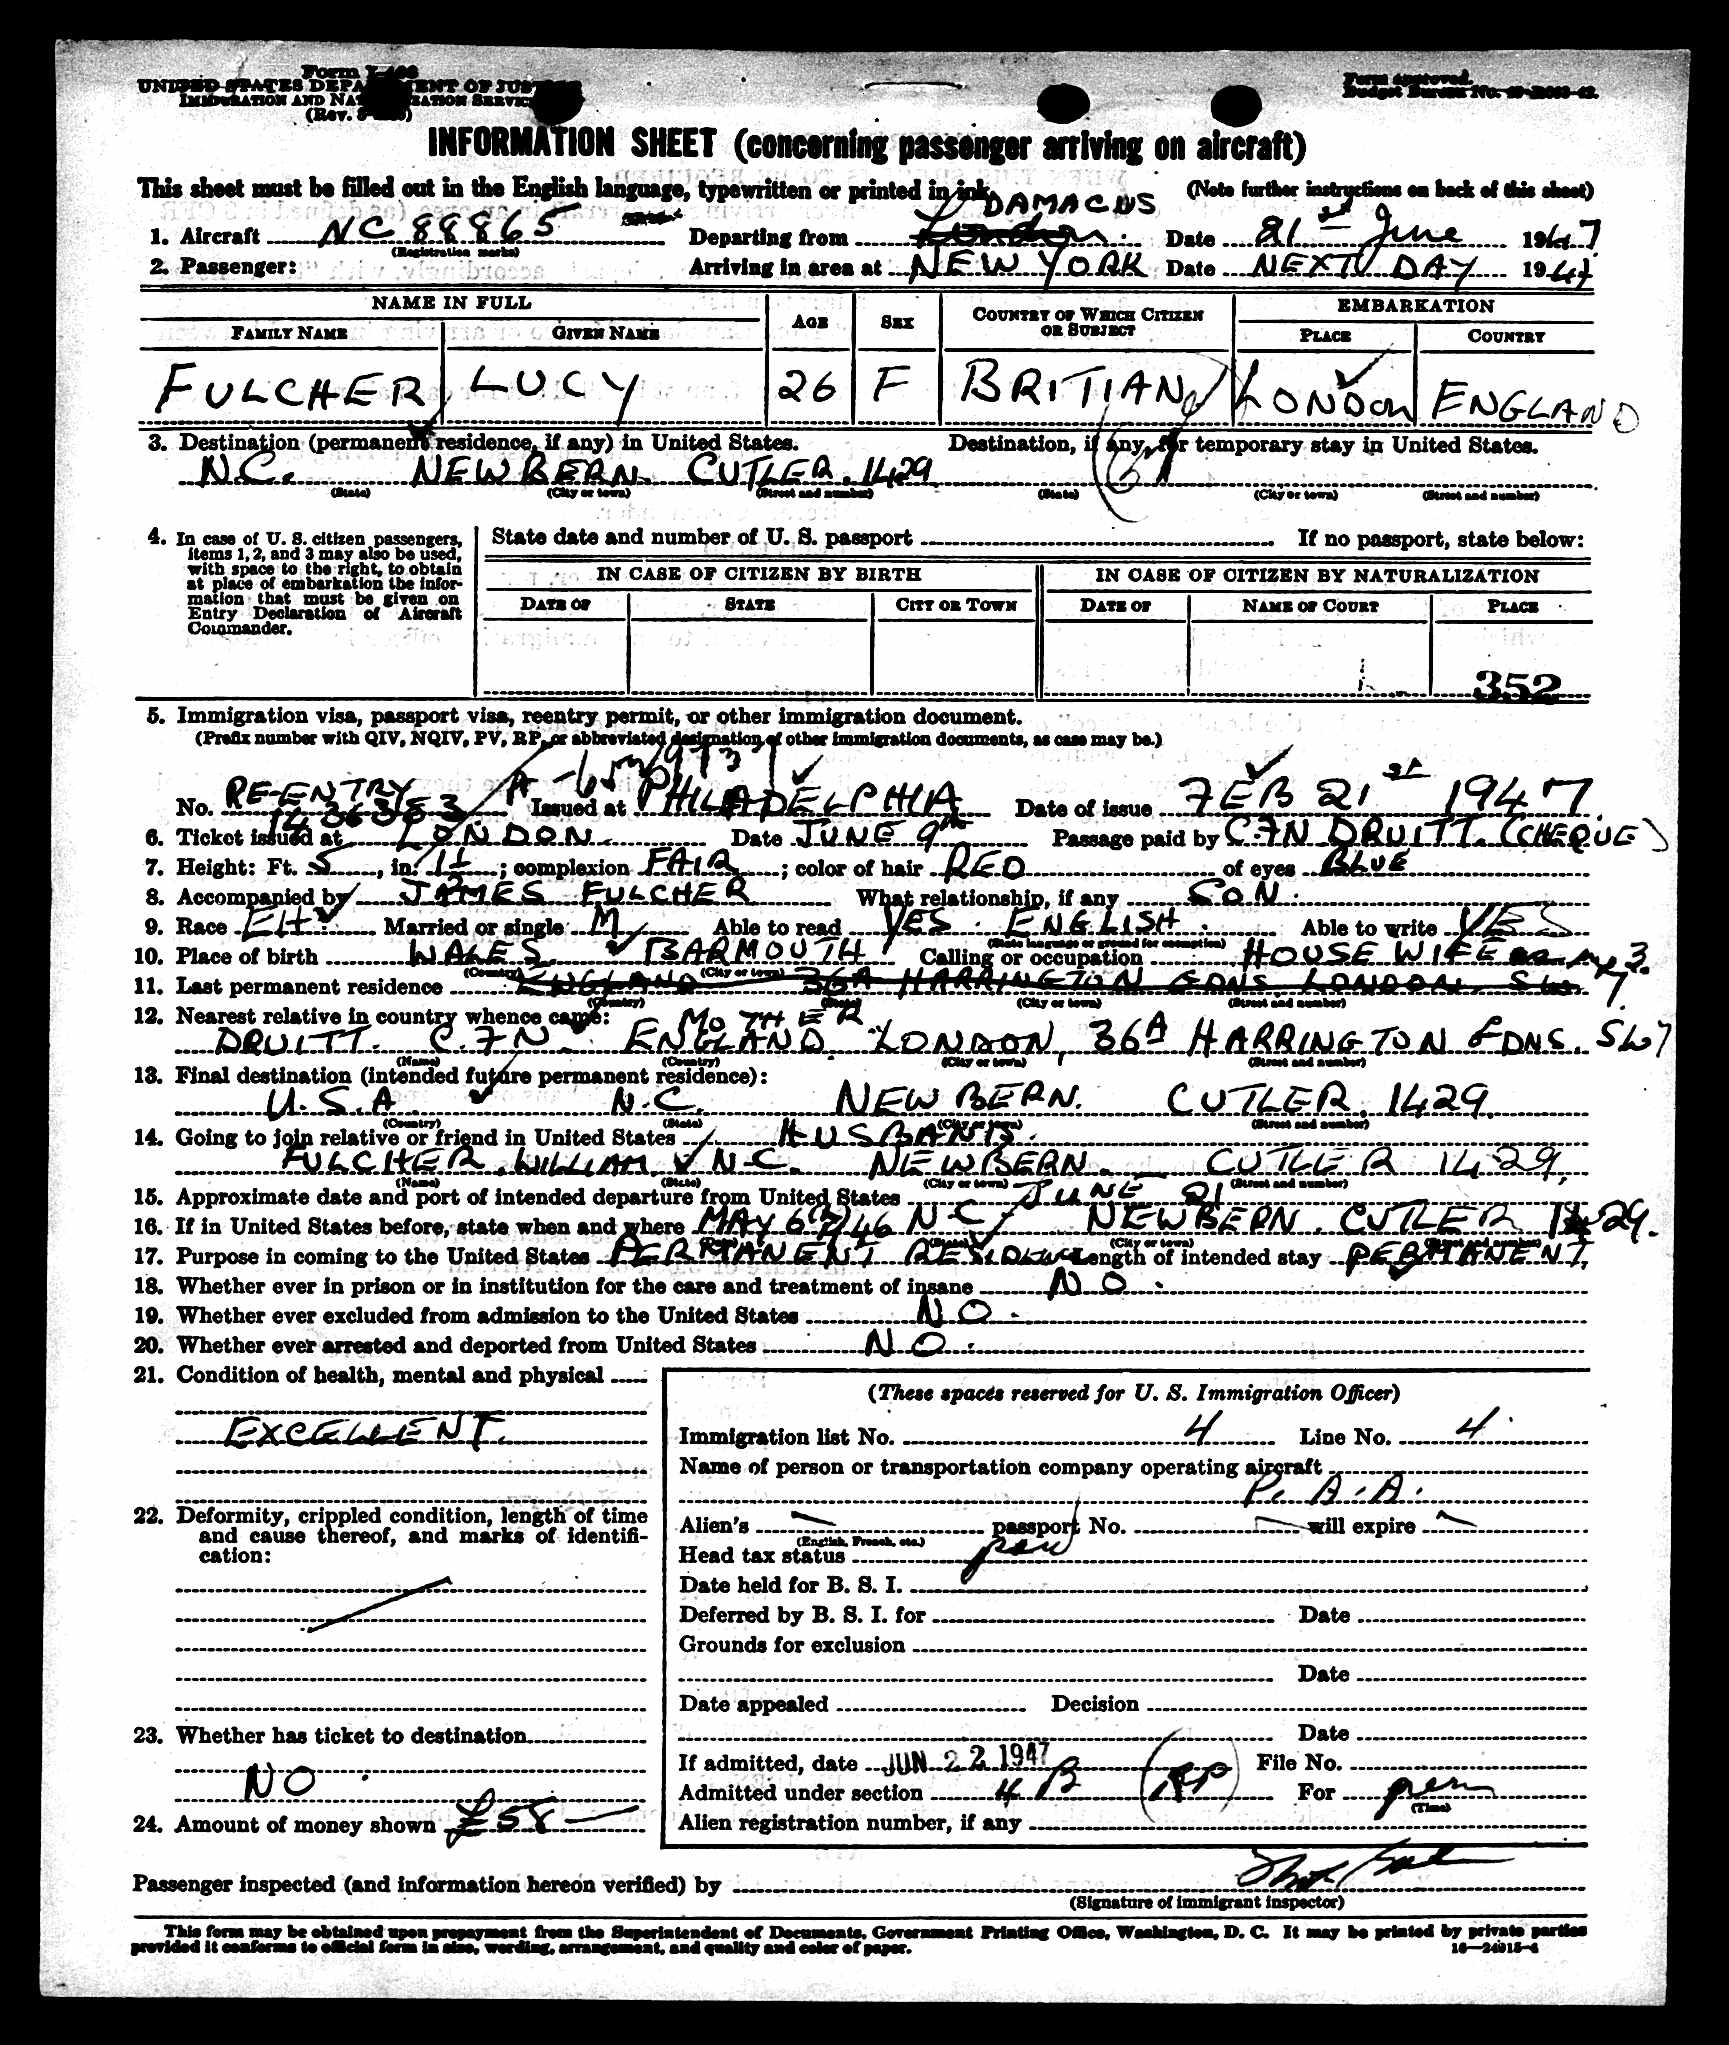 Form I-466
UNITED STATES DEPARTMENT OF JUSTICE
IMMIGRATION AND NATURALIZATION SERVICE
(Rev.
Form approved.
Budget Bureau No.
INFORMATION SHEET (concerning passenger arriving on aircraft)
This sheet must be filled out in the English language, typewritten or printed in ink. (Note further instructions on back of this sheet)
DAMACUS
1. Aircraft NC 88865 Departing from London. Date 21st June 1947
(Registration marks)
2. Passenger: Arriving in area at NEW YORK Date NEXT DAY 1947
NAME IN FULL AGE SEX COUNTRY OF WHICH CITIZEN OR SUBJECT EMBARKATION
FAMILY NAME GIVEN NAME PLACE COUNTRY
FULCHER LUCY 26 F BRITIAN LONDON ENGLAND
3. Destination (permanent residence, if any) in United States. Destination, if any, for temporary stay in United States.
N.C. NEW BERN. CUTLER. 1429
(State) (City or town) (Street and number) (State) (City or town) (Street and number)
4. In case of U. S. citizen passengers, items 1, 2, and 3 may also be used, with space to the right, to obtain at place of embarkation the information that must be given on Entry Declaration of Aircraft Commander.
State date and number of U. S. passport If no passport, state below:
IN CASE OF CITIZEN BY BIRTH IN CASE OF CITIZEN BY NATURALIZATION
DATE OF STATE CITY OR TOWN DATE OF NAME OF COURT PLACE
352
5. Immigration visa, passport visa, reentry permit, or other immigration document.
(Prefix number with QIV, NQIV, PV, RP, or abbreviated designation of other immigration documents, as case may be.)
RE-ENTRY
No. 1436383 Issued at PHILADELPHIA Date of issue FEB 21st 1947.
6. Ticket issued at LONDON. Date JUNE 9th Passage paid by C.F.N DRUITT. (CHEQUE)
7. Height: Ft. 5, in. 1½; complexion FAIR; color of hair RED of eyes BLUE
8. Accompanied by JAMES FULCHER What relationship, if any SON.
9. Race EH. Married or single M Able to read YES. ENGLISH. Able to write YES
(State language or ground for exemption)
10. Place of birth WALES BARMOUTH Calling or occupation HOUSE WIFE
(Country) (City or town)
11. Last permanent residence ENGLAND 36A HARRINGTON GDNS LONDON. SW7
(Country) (State) (City or town) (Street and number)
12. Nearest relative in country whence came: MOTHER
DRUITT. C.F.N. ENGLAND. LONDON, 36A HARRINGTON GDNS. SW7
(Name) (Country) (City or town) (Street and number)
13. Final destination (intended future permanent residence):
U.S.A. N.C. NEW BERN. CUTLER. 1429.
(Country) (State) (City or town) (Street and number)
14. Going to join relative or friend in United States HUSBAND.
FULCHER. WILLIAM. N.C. NEW BERN. CUTLER 1429.
(Name) (State) (City or town) (Street and number)
15. Approximate date and port of intended departure from United States JUNE 21
16. If in United States before, state when and where MAY 6th/46 N.C. NEW BERN. CUTLER 1429.
(State) (City or town) (Street and number)
17. Purpose in coming to the United States PERMANENT RESIDENCE Length of intended stay PERMANENT.
18. Whether ever in prison or in institution for the care and treatment of insane NO.
19. Whether ever excluded from admission to the United States NO.
20. Whether ever arrested and deported from United States NO.
21. Condition of health, mental and physical
EXCELLENT.
22. Deformity, crippled condition, length of time and cause thereof, and marks of identification:
23. Whether has ticket to destination
NO.
24. Amount of money shown £58
(These spaces reserved for U. S. Immigration Officer)
Immigration list No. 4 Line No. 4
Name of person or transportation company operating aircraft
P. A. A.
Alien's passport No. will expire
(English, French, etc.)
Head tax status
Date held for B. S. I.
Deferred by B. S. I. for Date
Grounds for exclusion
Date
Date appealed Decision
Date
If admitted, date JUN 22 1947 File No.
Admitted under section 4 B (RP) For perm
(Time)
Alien registration number, if any
Passenger inspected (and information hereon verified) by
(Signature of immigrant inspector)
This form may be obtained upon prepayment from the Superintendent of Documents, Government Printing Office, Washington, D. C. It may be printed by private parties
provided it conforms to official form in size, wording, arrangement, and quality and color of paper. 16—24915-4